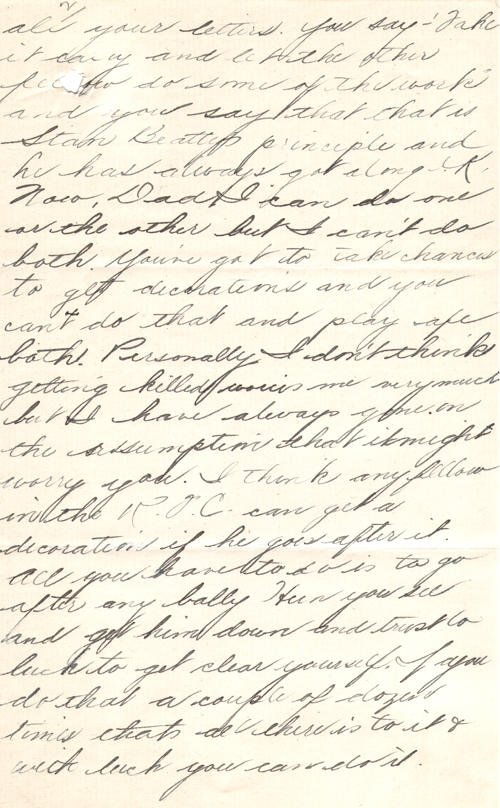 all your letters. You say - "Take
it easy and let the other
fellow do some of the work"
and you say that that is
Stan Beatty's principle and
he has always got along O.K.
Now, Dad, I can do one
or the other but I can't do
both. You've got to take chances
to get decorations and you
can't do that and play safe
both. Personally I don't think
getting killed worries me very much
but I have always gone on
the assumption that it might
worry you. I think any fellow
in the R.F.C. can get a
decoration if he goes after it.
All you have to do is to go
after any bally Hun you see
and get him down and trust to
luck to get clear yourself. If you
do that a couple of dozen
times thats all there is to it &
with luck you can do it.